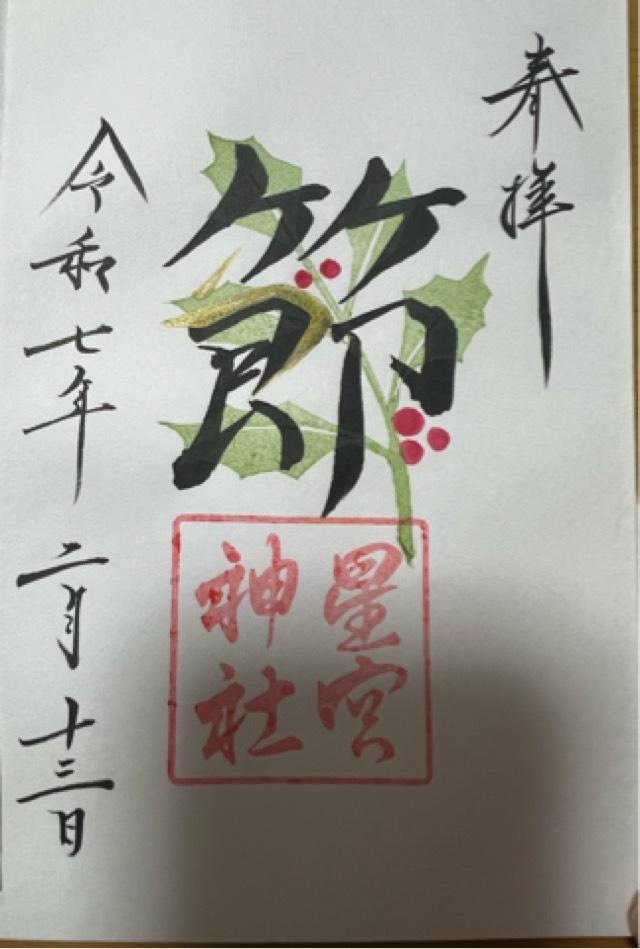 奉拝
節
星宮
神社
令和七年二月十三日